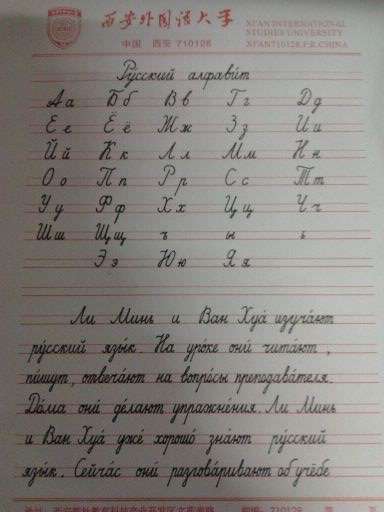 西安外国语大学
XI'AN INTERNATIONAL
STUDIES UNIVERSITY
中国 西安 710128
XI'AN 710128.P.R.CHINA
Ру́сский алфави́т
Аа Бб Вв Гг Дд
Ее Ёё Жж Зз Ии
Йй Кк Лл Мм Нн
Оо Пп Рр Сс Тт
Уу Фф Хх Цц Чч
Шш Щщ ъ ы ь
Ээ Юю Яя
Ли Минь и Ван Хуа́ изуча́ют
ру́сский язы́к. На уро́ке они́ чита́ют,
пи́шут, отвеча́ют на вопро́сы преподава́теля.
До́ма они́ де́лают упражне́ния. Ли Минь
и Ван Хуа́ уже́ хорошо́ зна́ют ру́сский
язы́к. Сейча́с они́ разгова́ривают об учёбе
710128